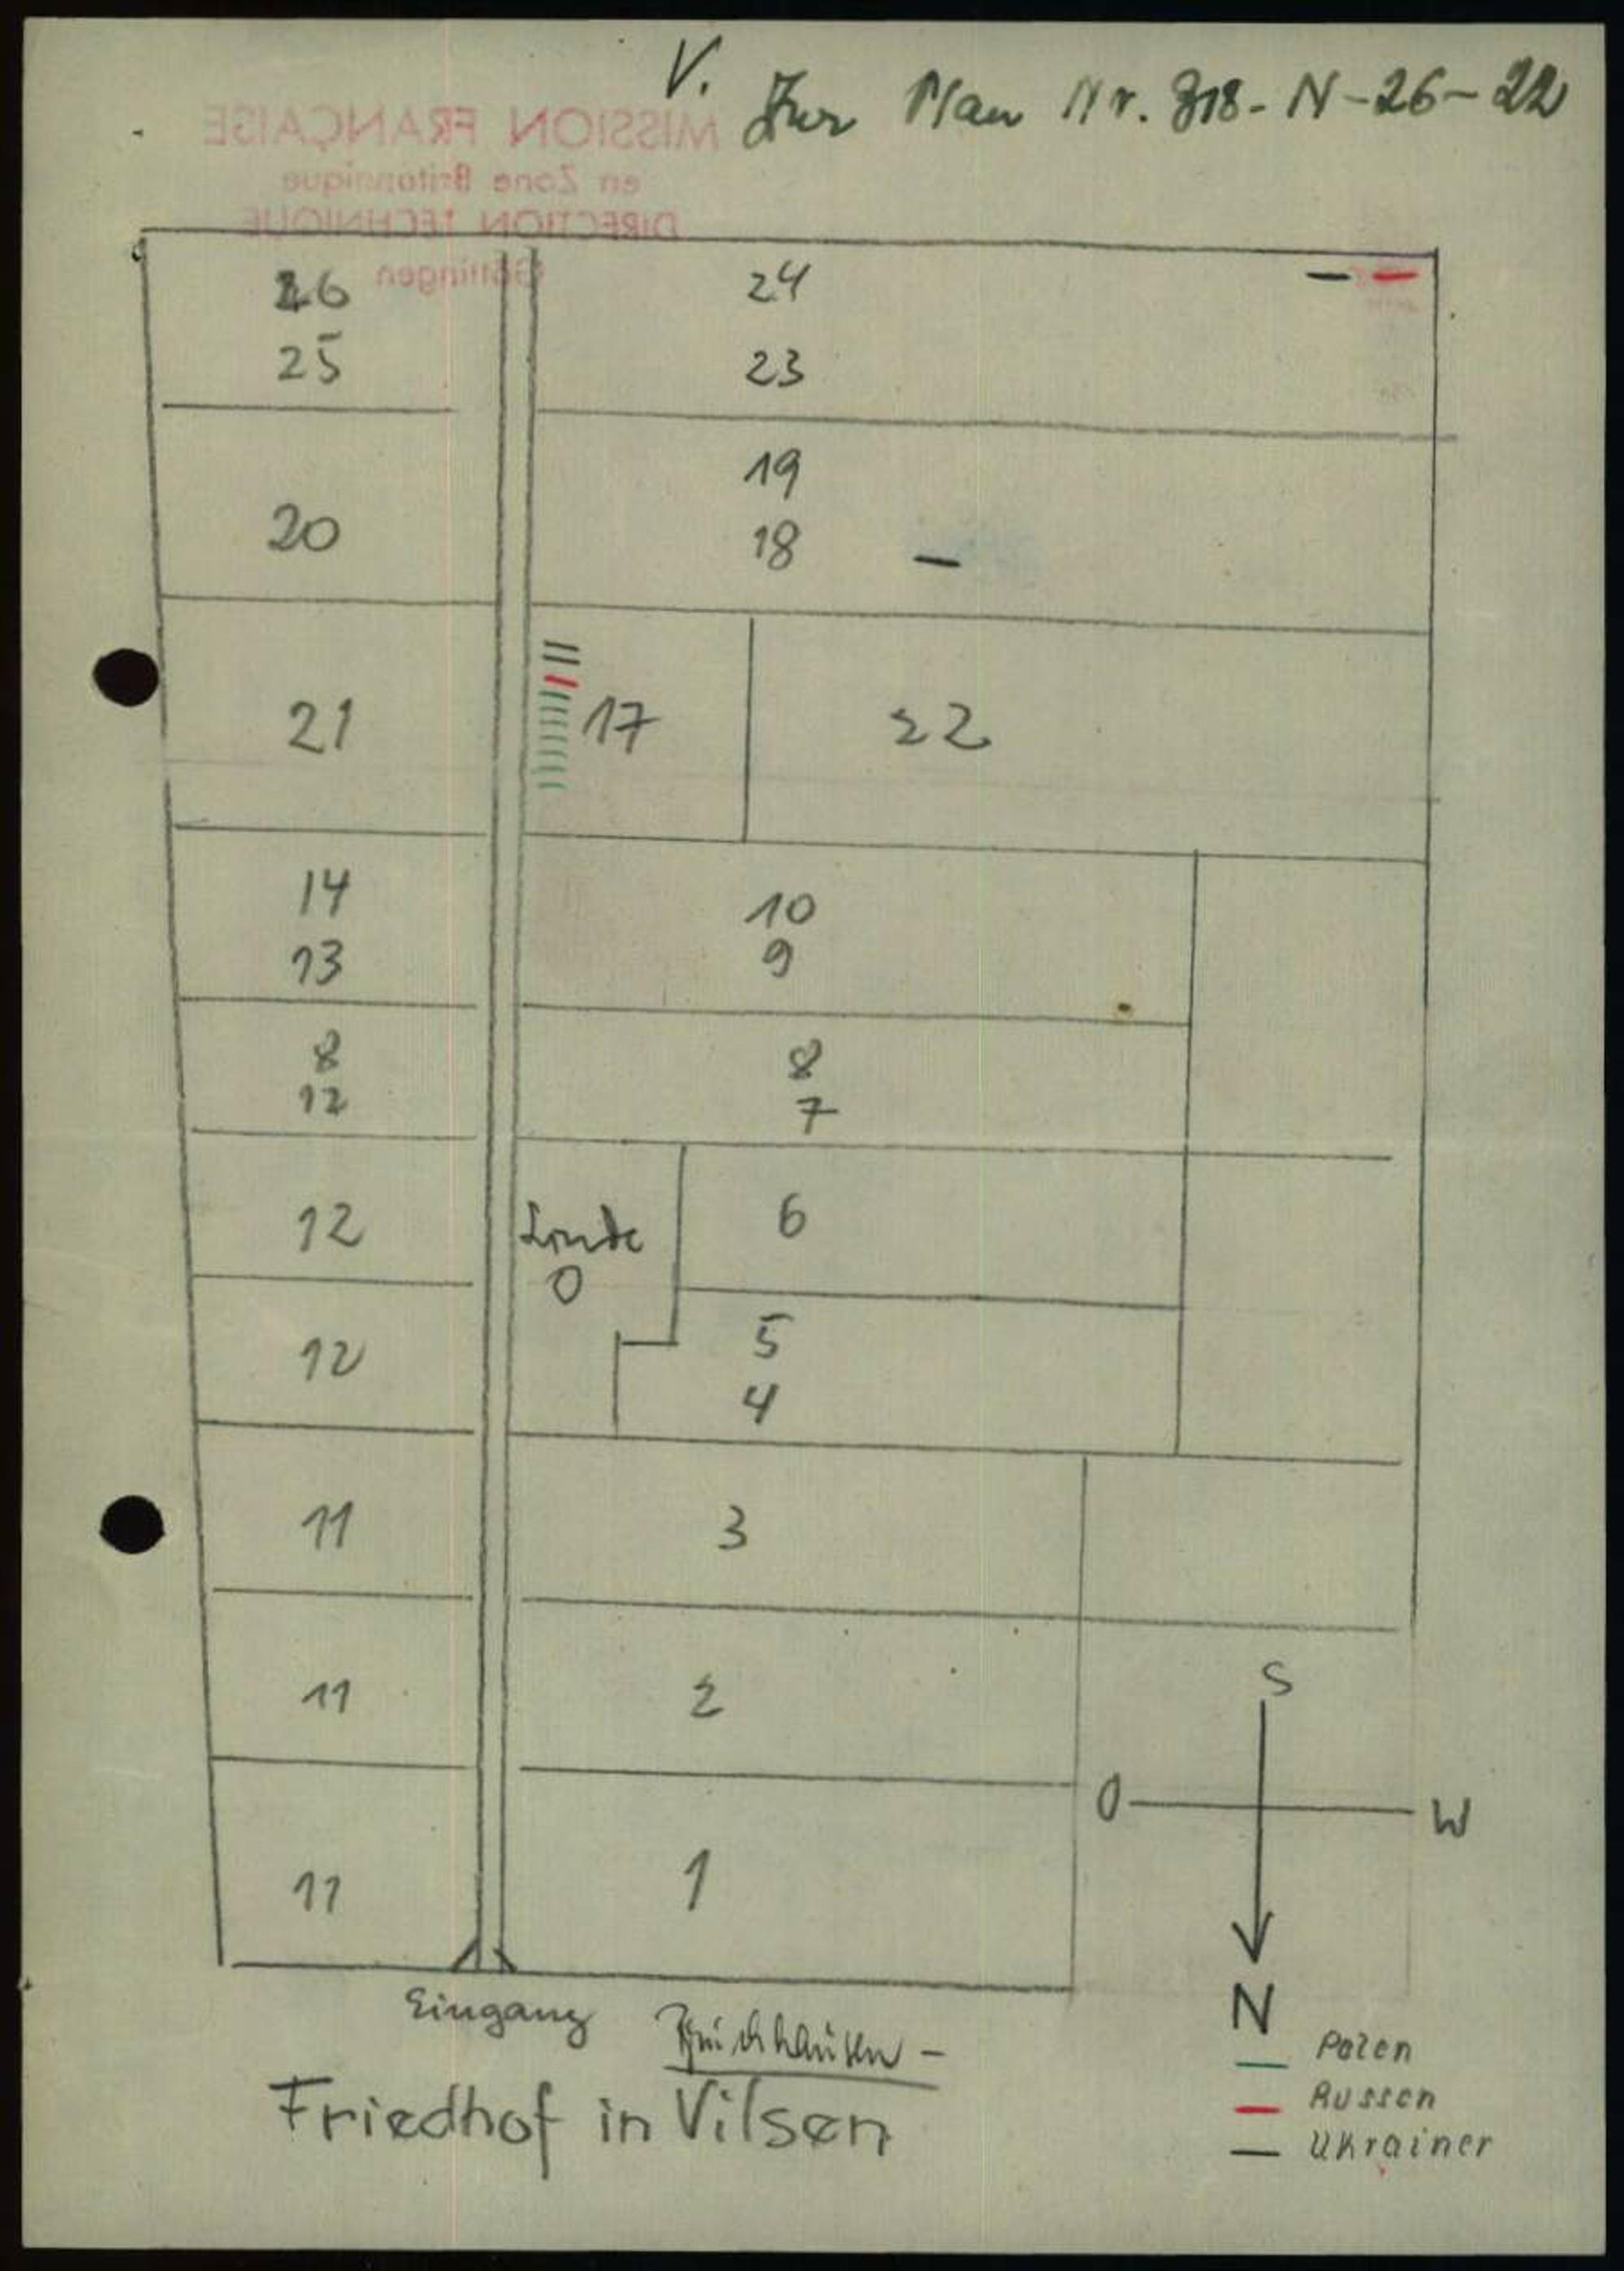 V. Zur Plan Nr. 318-N-26-22
MISSION FRANÇAISE
en Zone Britannique
DIRECTION TECHNIQUE
Göttingen
26 24
25 23
19
20 18
21 17 22
14 10
13 9
8 8
12 7
12 Linde 6
0
12 5
4
11 3
11 2
S
O W
11 1
N
Eingang Bruchhausen-
Friedhof in Vilsen
Polen
Russen
Ukrainer